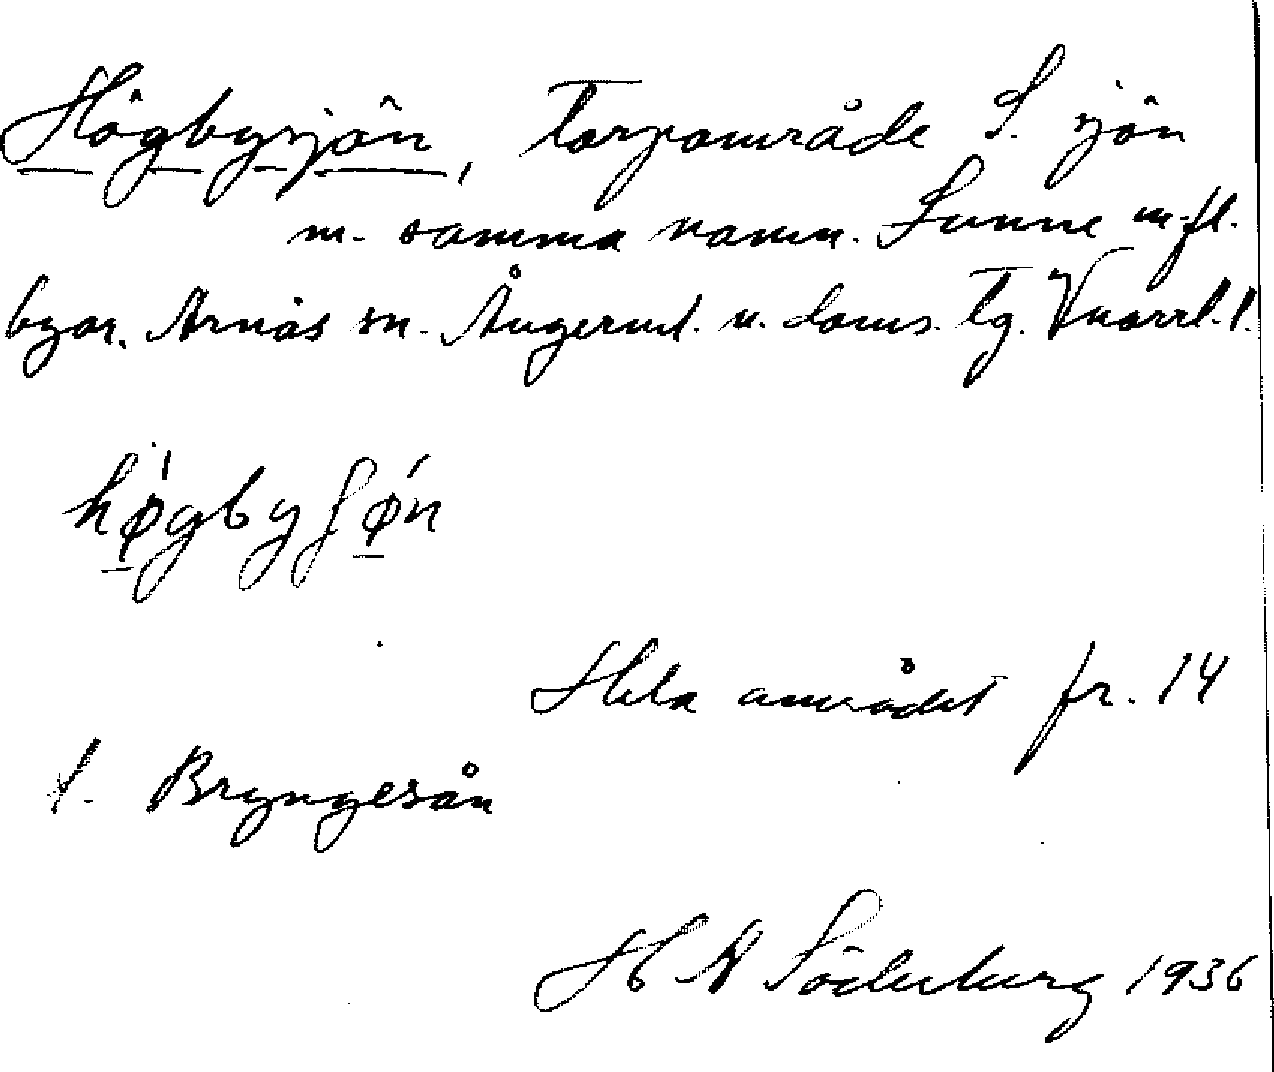 Högbysjön, Torpområde S. sjön
m. samma namn. Sunne m. fl.
byar. Arnäs sn. Ångerml. n. doms. tg. Vnorrl. l.
høgbyʃøn
Hela området fr. 14
t. Bryngesån
H N Söderberg 1936